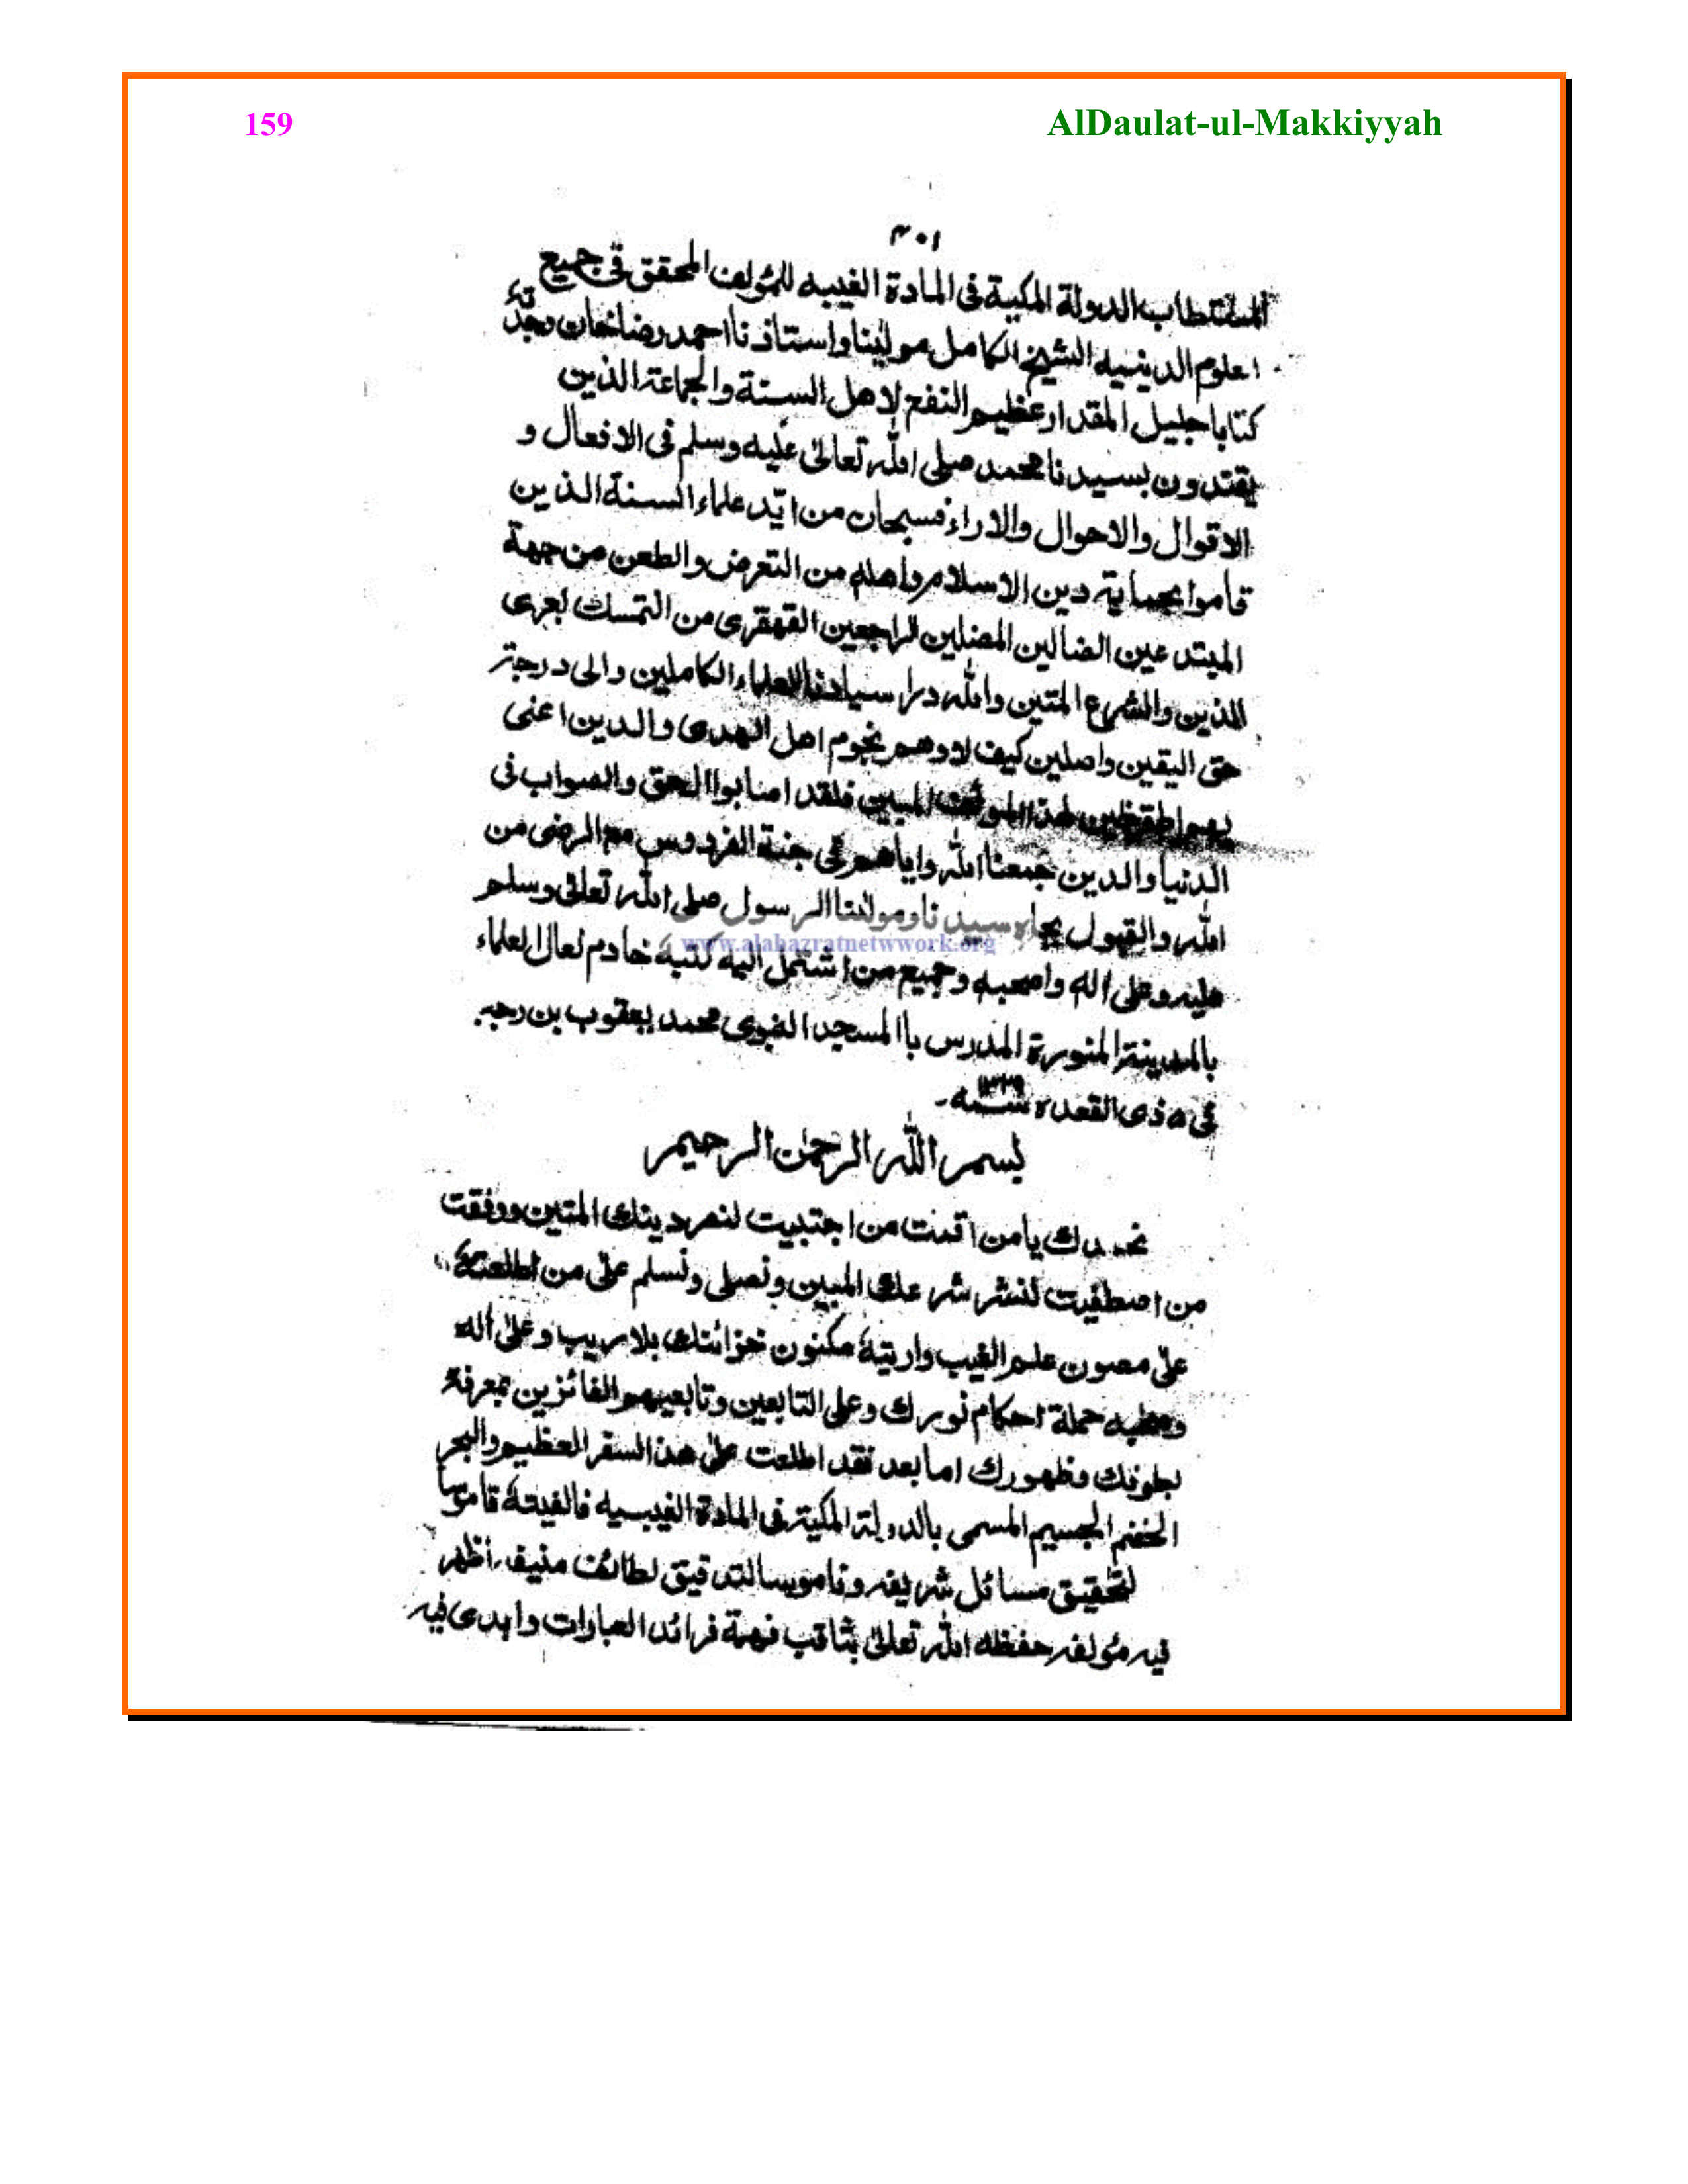 159
AlDaulat-ul-Makkiyyah
٣٠١
المستطاب الدولة المكية فى المادة الغيبيه للمؤلف المحقق فى جميع
العلوم الدينيه الشيخ الكامل مولينا واستاذنا احمد رضا خان وجدته
كتابا جليل المقدار عظيم النفع لاهل السنة والجماعة الذين
يقتدون بسيدنا محمد صلى الله تعالىٰ عليه وسلم فى الافعال و
الاقوال والاحوال والاراء فسبحان من ايّد علماء السنة الذين
قاموا بحماية دين الاسلام واهله من التعرض والطعن من جهة
المبتدعين الضالين المضلين الراجعين القهقرى من التمسك بعرى
الدين والشرع المتين والله در سيادنا العلماء الكاملين والى درجة
حق اليقين واصلين كيف لا وهم نجوم اهل الهدى والدين اعنى
المبين فلقد اصابوا الحق والصواب فى
الدنيا والدين جمعنا الله واياهم فى جنة الفردوس مع الرضى من
الله والقبول بجاه سيدنا ومولينا الرسول صلى الله تعالىٰ وسلم
www.alahazratnetwwork.org
عليه وعلى اله واصحبه وجميع من اشتمل اليه كتبه خادم نعال العلماء
بالمدينة المنورة المدرس باالمسجد النبوى محمد يعقوب بن رجب
فى ٥ ذى القعده ١٣٢٩ سنه۔
بسم الله الرحمٰن الرحيم
نحمدك يا من اقمت من اجتبيت لنصر دينك المتين ووفقت
من اصطفيت لنشر شرعك المبين ونصلى ونسلم علىٰ من اطلعته
علىٰ مصون علم الغيب واريته مكنون خزائنك بلا ريب وعلىٰ اله
وصحبه حملة احكام نورك وعلى التابعين وتابعيهم الفائزين بمعرفة
بطونك وظهورك اما بعد فقد اطلعت علىٰ هذا السفر العظيم والبحر
الخضم الجسيم المسمى بالدولة المكية فى المادة الغيبسيه فالفيته قاموسا
لتحقيق مسائل شريفه وناموسا لتدقيق لطائف منيفه اظهر
فيه مؤلفه حفظه الله تعالىٰ بثاقب فهمة فرائد العبارات وابدى فيه